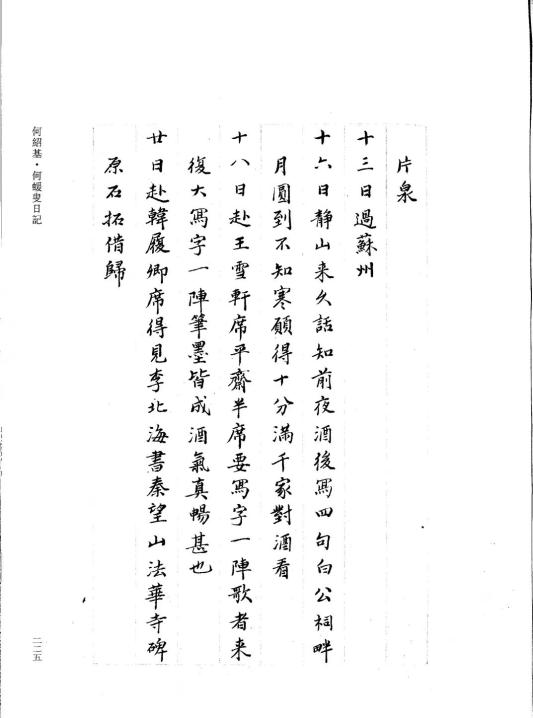 片泉
十三日過蘇州
十六日靜山来久話知前夜酒後寫四句白公祠畔
月圓到不知寒願得十分滿千家對酒看
十八日赴王雪軒席平齋半席要寫字一陣歌者来
復大寫字一陣筆墨皆成酒氣真暢甚也
廿日赴韓履卿席得見李北海書秦望山法華寺碑
原石拓借歸
何紹基·何蝯叟日記
二二五